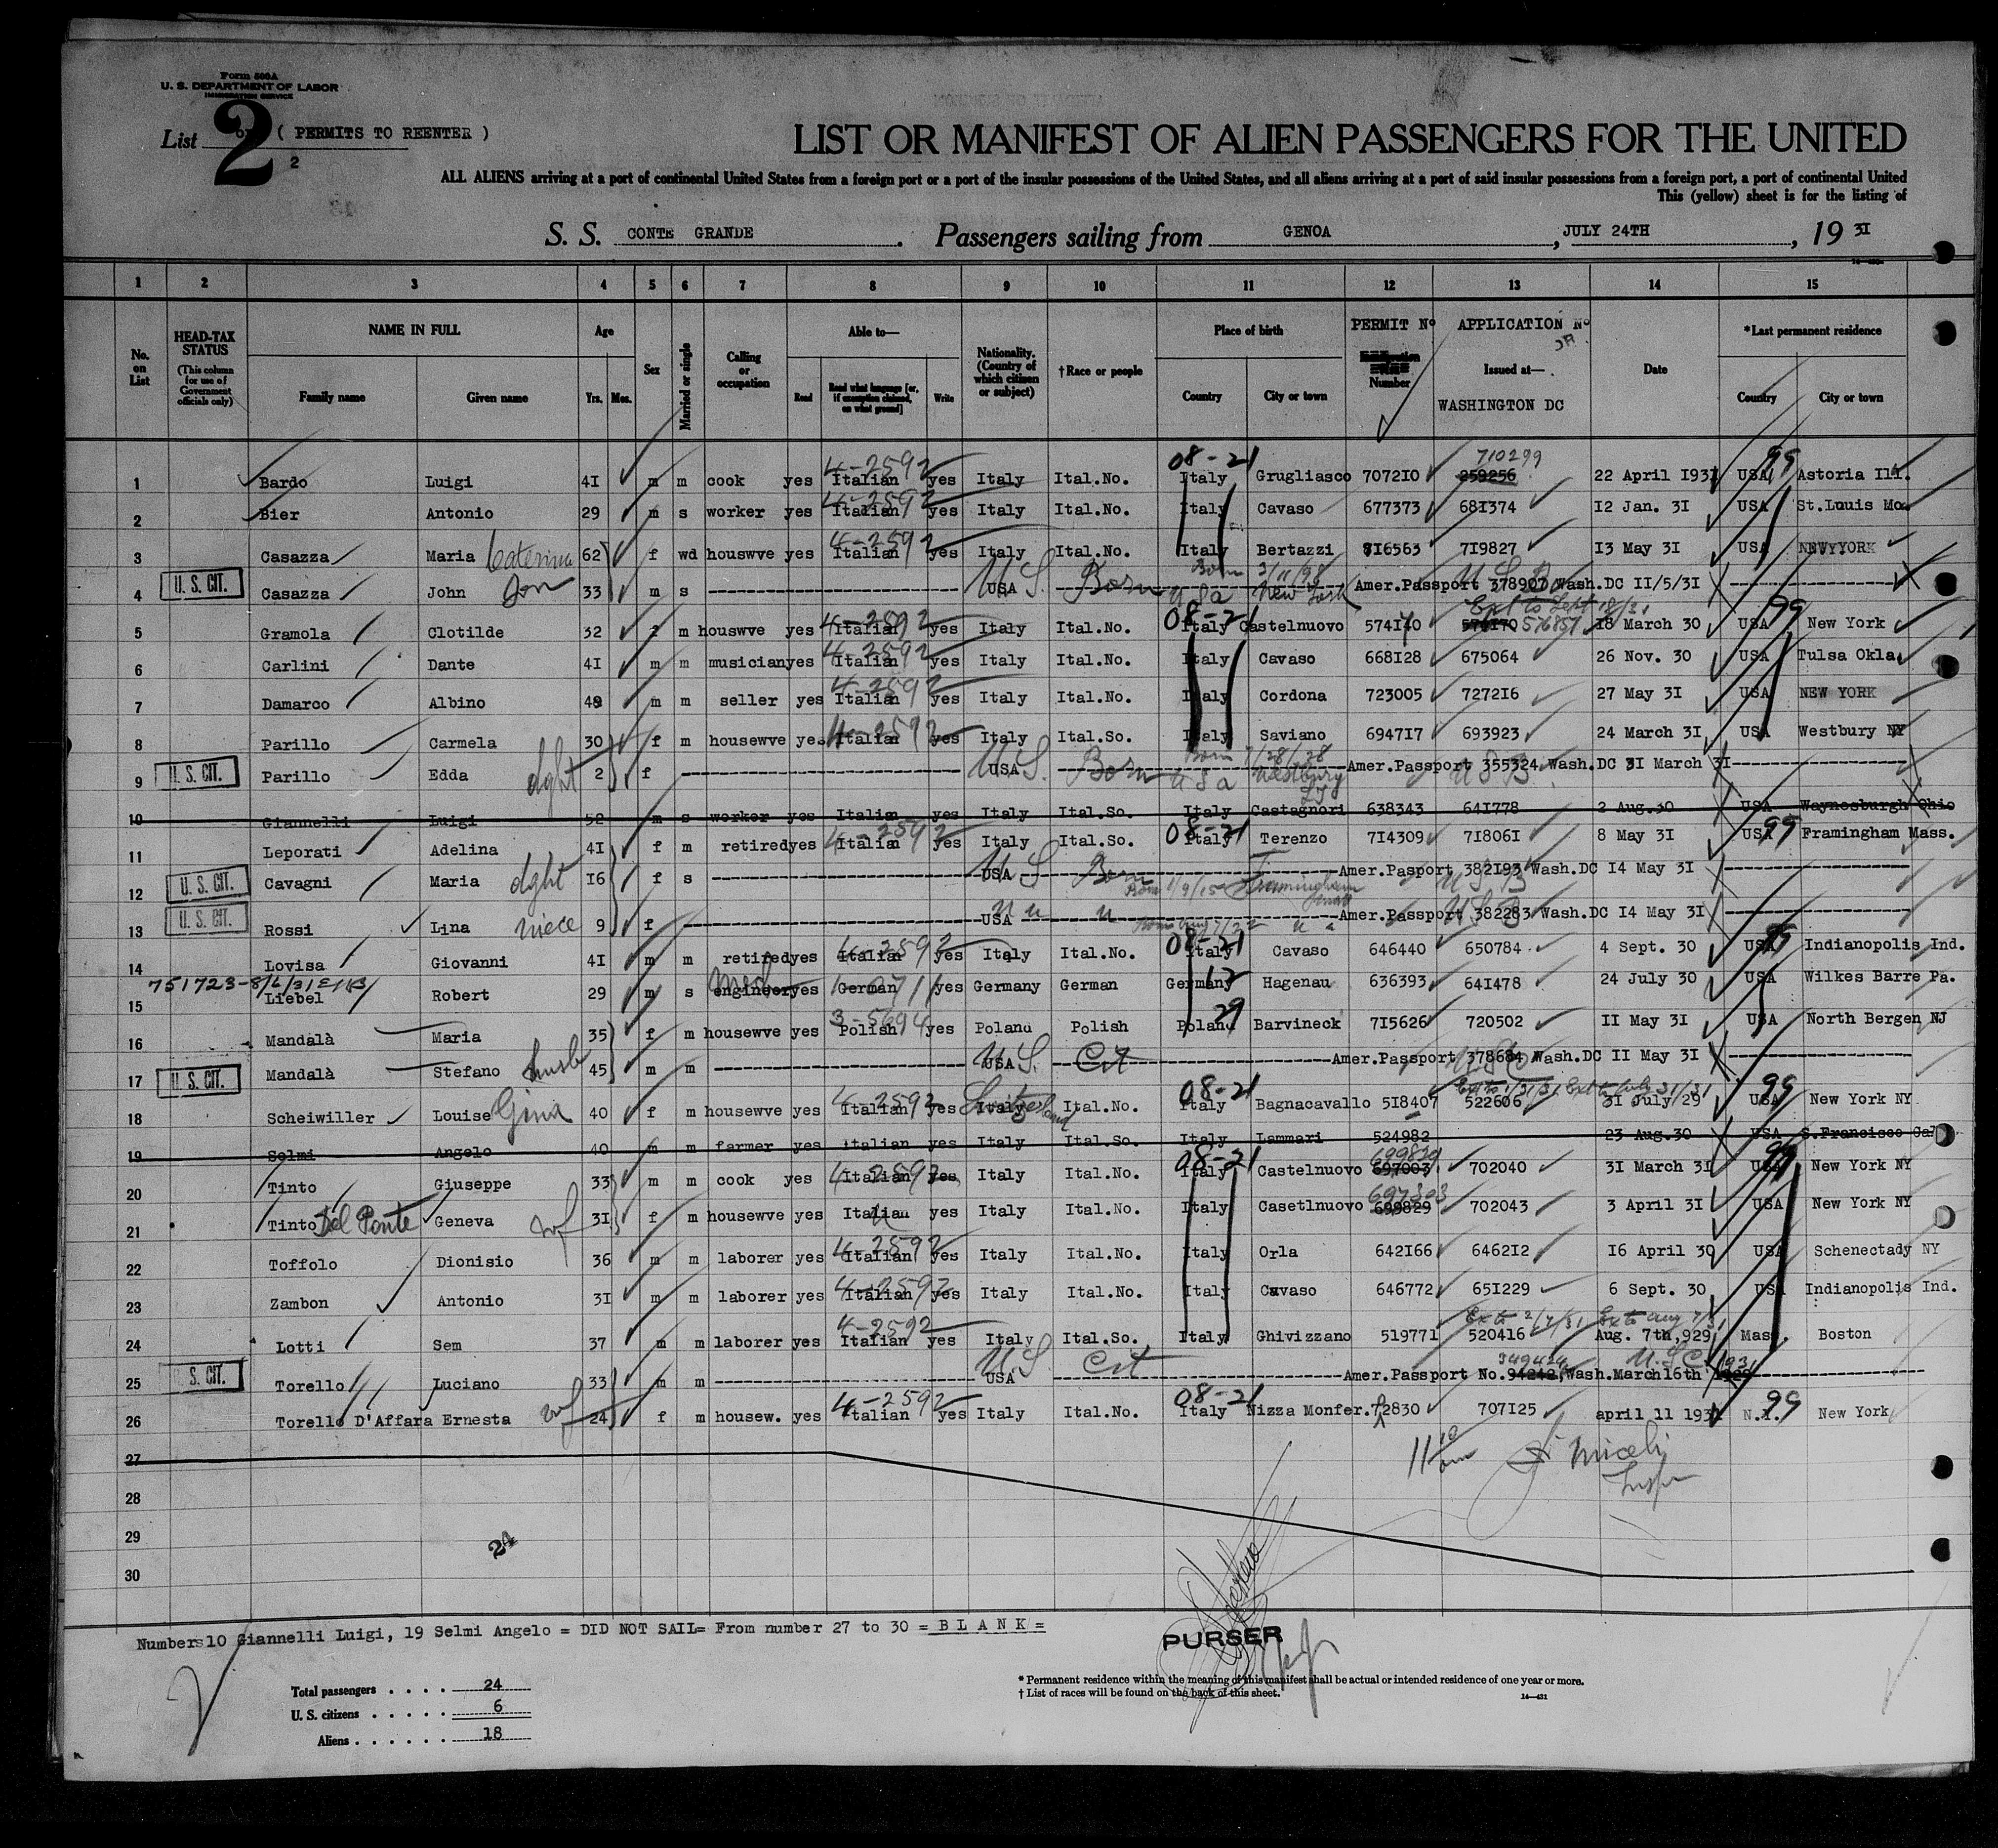 Form 500A
U. S. DEPARTMENT OF LABOR
IMMIGRATION SERVICE
List 2 ( PERMITS TO REENTER )
2
LIST OR MANIFEST OF ALIEN PASSENGERS FOR THE UNITED
ALL ALIENS arriving at a port of continental United States from a foreign port or a port of the insular possessions of the United States, and all aliens arriving at a port of said insular possessions from a foreign port, a port of continental United
This (yellow) sheet is for the listing of
S. S. CONTE GRANDE. Passengers sailing from GENOA, JULY 24TH, 19 3I
1 2 3 4 5 6 7 8 9 10 11 12 13 14 15
No. on List
HEAD-TAX STATUS
(This column for use of Government officials only)
NAME IN FULL
Family name Given name
Age
Yrs. Mos.
Sex
Married or single
Calling or occupation
Able to—
Read Read what language [or, if exemption claimed, on what ground] Write
Nationality. (Country of which citizen or subject)
†Race or people
Place of birth
Country City or town
PERMIT No
Number
APPLICATION No
Issued at—
WASHINGTON DC
Date
*Last permanent residence
Country City or town
4-2592 08-21 710299 99
1 Bardo Luigi 4I m m cook yes Italian yes Italy Ital.No. Italy Grugliasco 7072I0 259256 22 April I93I USA Astoria Ill.
4-2592
2 Bier Antonio 29 m s worker yes Italian yes Italy Ital.No. Italy Cavaso 677373 68I374 I2 Jan. 3I USA St.Louis Mo.
4-2592
3 Casazza Maria Caterina 62 f wd houswve yes Italian yes Italy Ital.No. Italy Bertazzi 8I6563 7I9827 I3 May 3I USA NEW YORK
Born 3/11/98
4 U. S. CIT. Casazza John Son 33 m s USA U S. Born USA New York Amer.Passport 378907 Wash.DC II/5/3I
4-2592 08-21 Ext to Sept 18/31 99
5 Gramola Clotilde 32 f m houswve yes Italian yes Italy Ital.No. Italy Castelnuovo 574I70 576I70 576857 I8 March 30 USA New York
4-2592
6 Carlini Dante 4I m m musician yes Italian yes Italy Ital.No. Italy Cavaso 668I28 675064 26 Nov. 30 USA Tulsa Okla.
4-2592
7 Damarco Albino 49 m m seller yes Italian yes Italy Ital.No. Italy Cordona 723005 7272I6 27 May 3I USA NEW YORK
4-2592
8 Parillo Carmela 30 f m housewve yes Italian yes Italy Ital.So. Italy Saviano 6947I7 693923 24 March 3I USA Westbury NY
Born 7/28/28
9 U. S. CIT. Parillo Edda dght 2 f USA U S. Born USA Westbury L I Amer.Passport 355324 U S B Wash.DC 3I March 3I
10 Giannelli Luigi 52 m s worker yes Italian yes Italy Ital.So. Italy Castagnori 638343 64I778 2 Aug.30 USA Waynesburgh Ohio
4-2592 08-21 99
11 Leporati Adelina 4I f m retired yes Italian yes Italy Ital.So. Italy Terenzo 7I4309 7I806I 8 May 3I USA Framingham Mass.
12 U. S. CIT. Cavagni Maria dght I6 f s USA U S Born Amer.Passport 382I93 U S B Wash.DC I4 May 3I
Born 1/9/15 Framingham
13 U. S. CIT. Rossi Lina niece 9 f USA Amer.Passport 382283 U S B Wash.DC I4 May 3I
4-2592 08-21
14 Lovisa Giovanni 4I m m retired yes Italian yes Italy Ital.No. Italy Cavaso 646440 650784 4 Sept. 30 USA Indianopolis Ind.
15 Liebel Robert 29 m s engineer yes German yes Germany German Germany 12 Hagenau 636393 64I478 24 July 30 USA Wilkes Barre Pa.
3-5694 29
16 Mandalà Maria 35 f m housewve yes Polish yes Poland Polish Poland Barvineck 7I5626 720502 II May 3I USA North Bergen NJ
17 U. S. CIT. Mandalà Stefano husb 45 m m USA U S. Cit Amer.Passport 378684 Wash.DC II May 3I
4-2592 08-21 Ext to 1/31/31 Ext to July 31/31 99
18 Scheiwiller Louise Gina 40 f m housewve yes Italian yes Italy Switzerland Ital.No. Italy Bagnacavallo 5I8407 522606 3I July 29 USA New York NY
19 Selmi Angelo 40 m m farmer yes Italian yes Italy Ital.So. Italy Lammari 524982 23 Aug.30 USA S.Francisco Cal
4-2592 08-21 699829 99
20 Tinto Giuseppe 33 m m cook yes Italian yes Italy Ital.No. Italy Castelnuovo 697003 702040 3I March 3I USA New York NY
697303
21 Tinto Del Ponte Geneva wf 3I f m housewve yes Italian yes Italy Ital.No. Italy Casetlnuovo 699829 702043 3 April 3I USA New York NY
4-2592
22 Toffolo Dionisio 36 m m laborer yes Italian yes Italy Ital.No. Italy Orla 642I66 6462I2 I6 April 30 USA Schenectady NY
4-2592
23 Zambon Antonio 3I m m laborer yes Italian yes Italy Ital.No. Italy Cavaso 646772 65I229 6 Sept. 30 USA Indianopolis Ind.
4-2592 Ext 2/7/31 Ext to Aug 7/31
24 Lotti Sem 37 m m laborer yes Italian yes Italy Ital.So. Italy Ghivizzano 51977I 520416 Aug. 7th,929 Mass. Boston
349424 U.S.C. 1931
25 S. CIT. Torello Luciano 33 m m USA U.S. Cit Amer.Passport No.94242,Wash.March16th 1929
4-2592 08-21 99
26 Torello D'Affara Ernesta wf 24 f m housew. yes Italian yes Italy Ital.No. Italy Nizza Monfer. 72830 707I25 april 11 193I N.Y. New York
27
28
29
30
24
11 10 am J. Miceli
Insp
Numbers10 Giannelli Luigi, 19 Selmi Angelo = DID NOT SAIL= From number 27 to 30 = B L A N K =
PURSER
Total passengers . . . . 24
U. S. citizens . . . . . 6
Aliens . . . . . . 18
* Permanent residence within the meaning of this manifest shall be actual or intended residence of one year or more.
† List of races will be found on the back of this sheet.
14—431